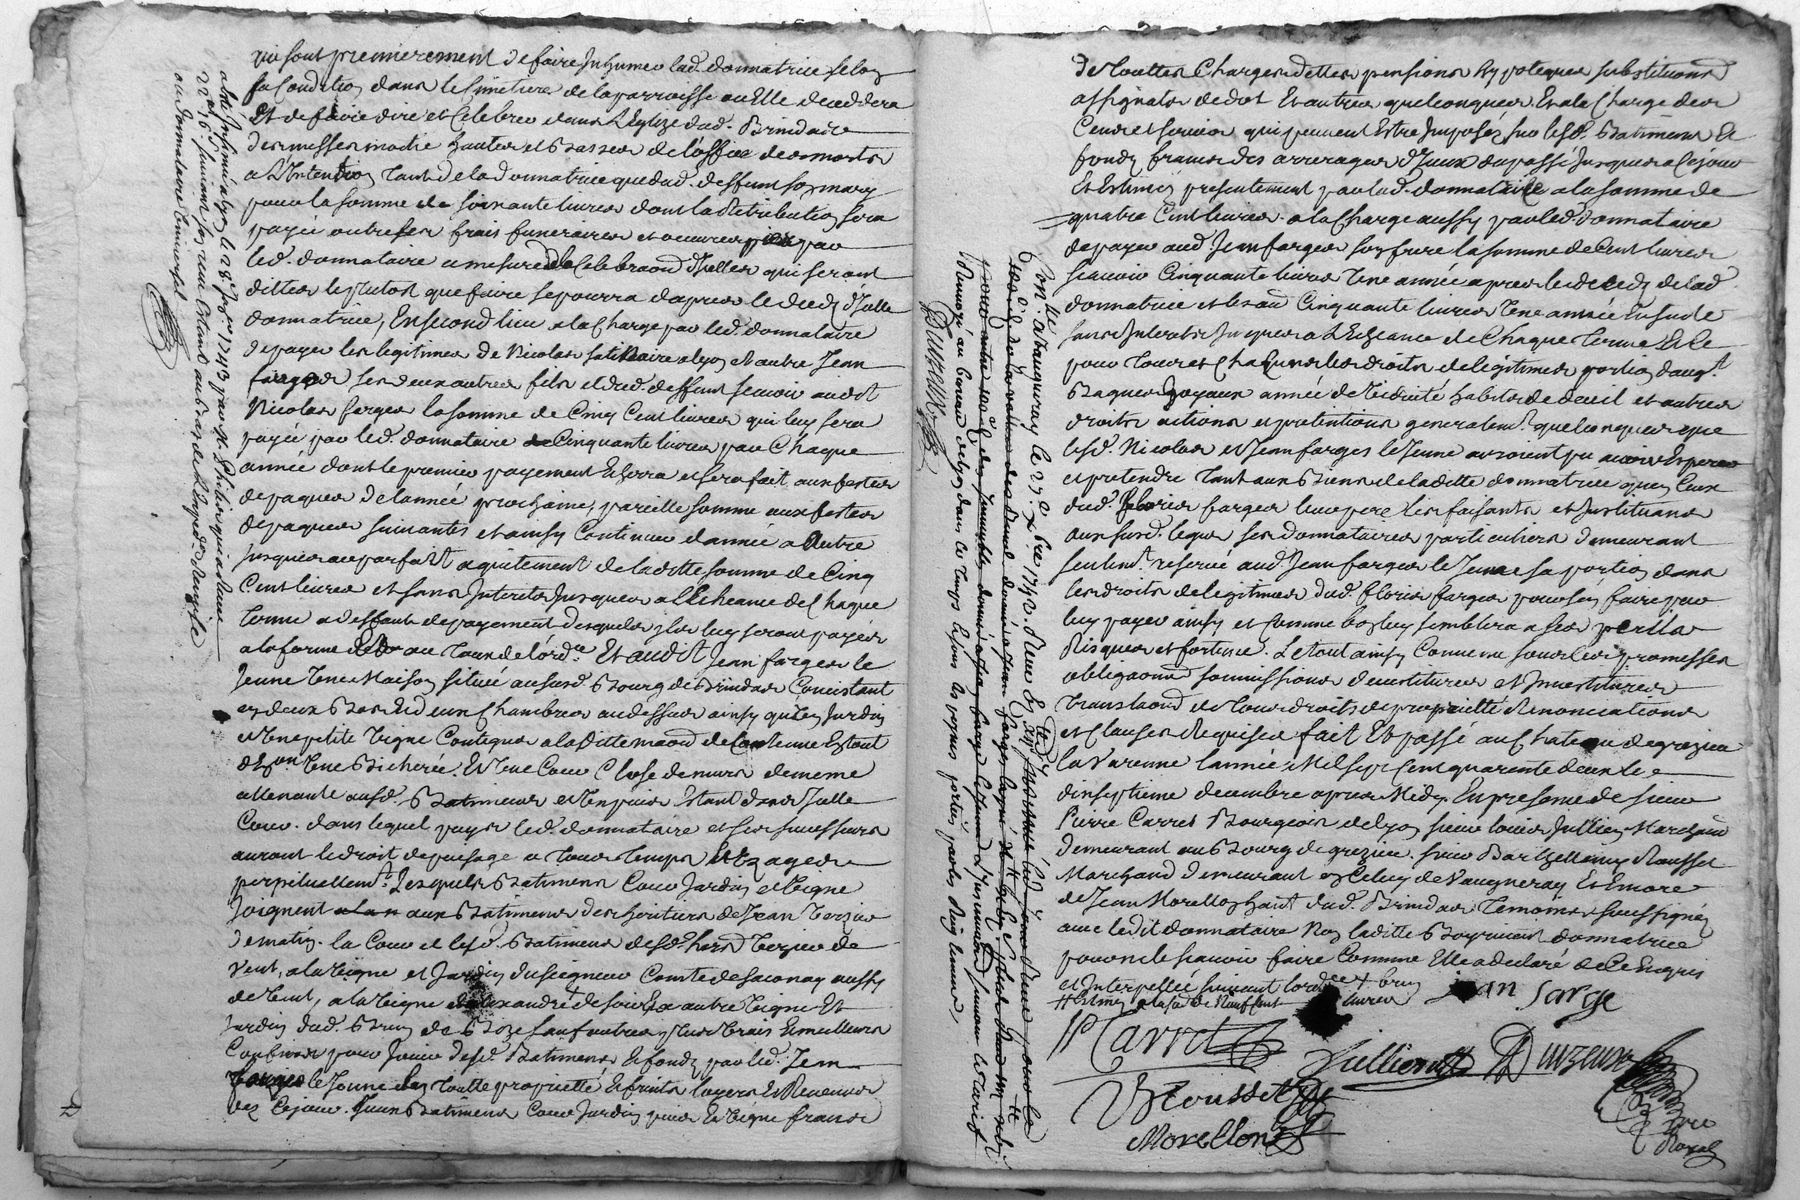 qui sont premierement de faire Inhumer lad. donnatrice selon
sa Condition dans le Cimetiere de la parroisse ou Elle deceddera
Et de faire dire et Celebrer dans L'Eglize dud. Brindais
des messes moitié hautes et Basses de l'office des morts
a L'Intention tant de la donnatrice que dud. deffunt son mary
pour la somme de soixante livres dont la Retribution sera
payée outre les frais funeraires et oeuvres pies par
led. donnataire a mesure de la Celebraon d'Icelles qui seront
dittes le plutost que faire se pourra d'apres le decedz d'Icelle
donnatrice, En second lieu a la Charge par led. donnataire
de payer les legitimes de Nicolas et autre Jean
farges ses deux autres fils et dud. deffunt scavoir audit
Nicolas farges la somme de Cinq Cent livres qui luy sera
payée par led. donnataire de Cinquante livres par Chaque
année dont le premier payement Echerra et sera fait aux festes
de paques de l'année prochaine, pareille somme aux festes
de paques suivantes et ainsy Continuer d'année a Autre
jusques au parfait aquitement de laditte somme de Cinq
Cent livres et sans Interets jusques a l'Echeance de Chaque
terme a deffaut de payement desquels ils luy seront payés
a la forme et au taux de l'ord.ce Et audit Jean farges le
Jeune Une Maison située au susd. Bourg de Brindas Consistant
en deux Bas et deux Chambres au dessus ainsy qu'un Jardin
et Une petite Vigne Contigue a laditte maison de Contenue Estant
d'Environ Une Bicherée. Et Une Cour Close de murs de meme
attenante ausd. Batimens et Un puits Estant dans Icelle
Cour. dans lequel puys led. donnataire et ses successeurs
auront le droit de puisage a tous temps Et usages
perpetuellemt. Lesquels Batimens Cour Jardin et Vigne
Joignent aux Batimens des heritiers de Jean Verzier
de matin. la Cour et lesd. Batimens desd. hers Verzier de
Vent, a la Vigne et Jardin du seigneur Comte de saconay aussy
de Vent, a la Vigne de soir autre Vigne Et
Jardin dud. sauf autres plus Vrais Et meilleurs
Confins pour Jouir desd. Batimens Et fondz par led. Jean
farges le Jeune En Toutte proprietté Et fruits loyers Et Revenus
des Cejour. Iceux Batimens Cour Jardin puits Et Vigne francs
a esté Insinué a lyon le 28e Xbre 1743 par Mr. Philis qui a Receu
donnataire Universel
de Touttes Charges dettes pensions hypoteques substitutions
assignats de dot Et autres quelconques. Et a la Charge des
Cens et servis qui peuvent Estre Imposés sur lesd. Batimens Et
fondz francs des arrerages d'Iceux du passé jusques a Cejour
Et Estimés presentement par lad. donnatrice a la somme de
quatre Cent livres. a la Charge aussy par led. donnataire
de payer aud. Jean farges son frere la somme de Cent livres
scavoir Cinquante livres Une année apres le decedz de lad.
donnatrice et les au. Cinquante livres Une année Ensuite
sans Interets jusques a L'Echeance de Chaque Terme Et Ce
pour Tous et Chacuns les droits de legitimes portion d'augt
Bagues Joyaux année de Viduité habits de deuil et autres
droits actions et pretentions generalemt. quelconques que
lesd. Nicolas et Jean farges le Jeune auroient pu avoir Esperer
et pretendre tant aux Biens de laditte donnatrice qu'en Ceux
dud. florice farges leur pere les faisants et Instituans
aux susd. legs ses donnataires particuliers demeurant
seulemt. reservé aud. Jean farges le Jeune sa portion dans
les droits de legitimes dud. florice farges pour s'en faire par
luy payer ainsy et Comme bon luy semblera a ses perils
Risques et fortune. Le tout ainsy Convenu sous les promesses
obligaons soumissions devestitures et Investitures
translaons de tous droits de proprietté Renonciations
et Clauses Requises fait Et passé au Chateau de grezieu
la Varenne l'année Mil sept Cent quarente deux le
dixseptieme decembre apres Midy. En presence de sieur
Pierre Carret Bourgeois de lyon sieur louis Jullien Marchand
demeurant au Bourg de grezieu. sieur Barthellemy Rousset
Marchand demeurant en Celuy de Vaugneray Et Encore
de Jean Morellon habt. dud. Brindas temoins soussignés
avec ledit donnataire Non laditte donnatrice
pour ne le scavoir faire Comme Elle a declaré de Ce Enquis
et Interpellée suivant l'ordce
jean farge
P Carret
Jullien
Duvzeur
B Rousset
Morellon
Nore
Royal
Conlle. a Vaugneray le 27e Xbre 1742. Receu
Renvoyé au bureau de lyon dans le temps
Duvzeur